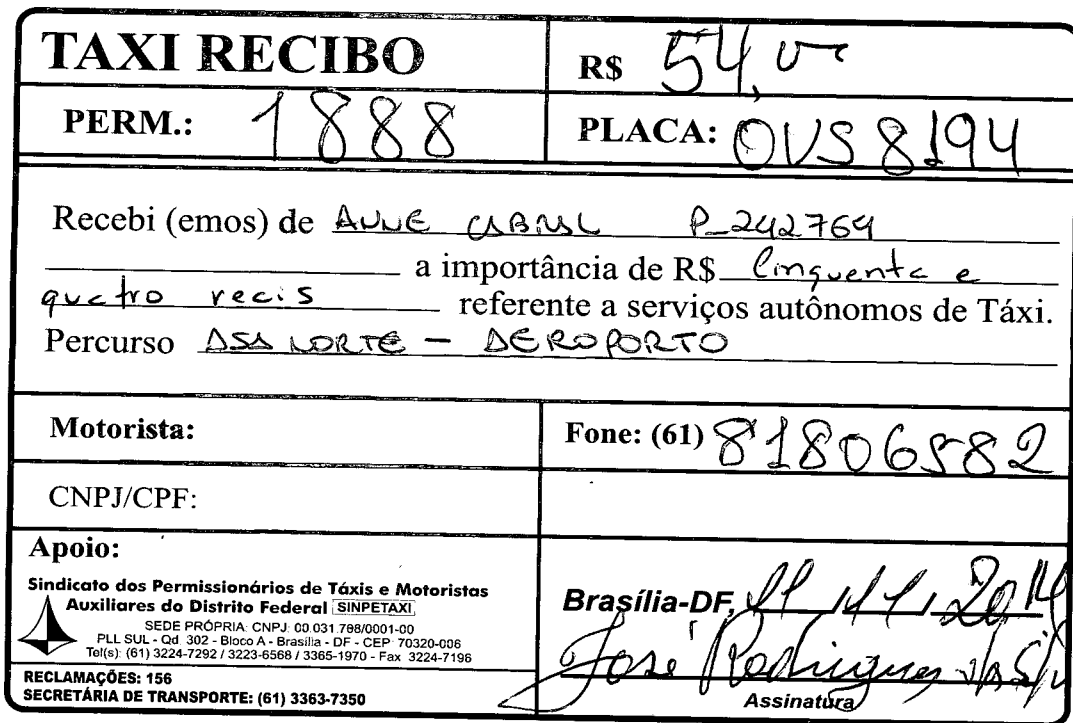 TAXI RECIBO
R$ 54,00
PERM.: 1888
PLACA: OVS 8194
Recebi (emos) de ANNE CABRAL P_242764
a importância de R$ Cinquenta e
quatro reais referente a serviços autônomos de Táxi.
Percurso ASA NORTE - AEROPORTO
Motorista:
Fone: (61) 81806582
CNPJ/CPF:
Apoio:
Sindicato dos Permissionários de Táxis e Motoristas
Auxiliares do Distrito Federal SINPETAXI
SEDE PRÓPRIA: CNPJ: 00.031.788/0001-00
PLL SUL - Qd 302 - Bloco A - Brasília - DF - CEP: 70320-006
Tel(s): (61) 3224-7292 / 3223-6568 / 3365-1970 - Fax 3224-7196
RECLAMAÇÕES: 156
SECRETÁRIA DE TRANSPORTE: (61) 3363-7350
Brasília-DF, 11 / 11 / 2014
José Rodrigues
Assinatura